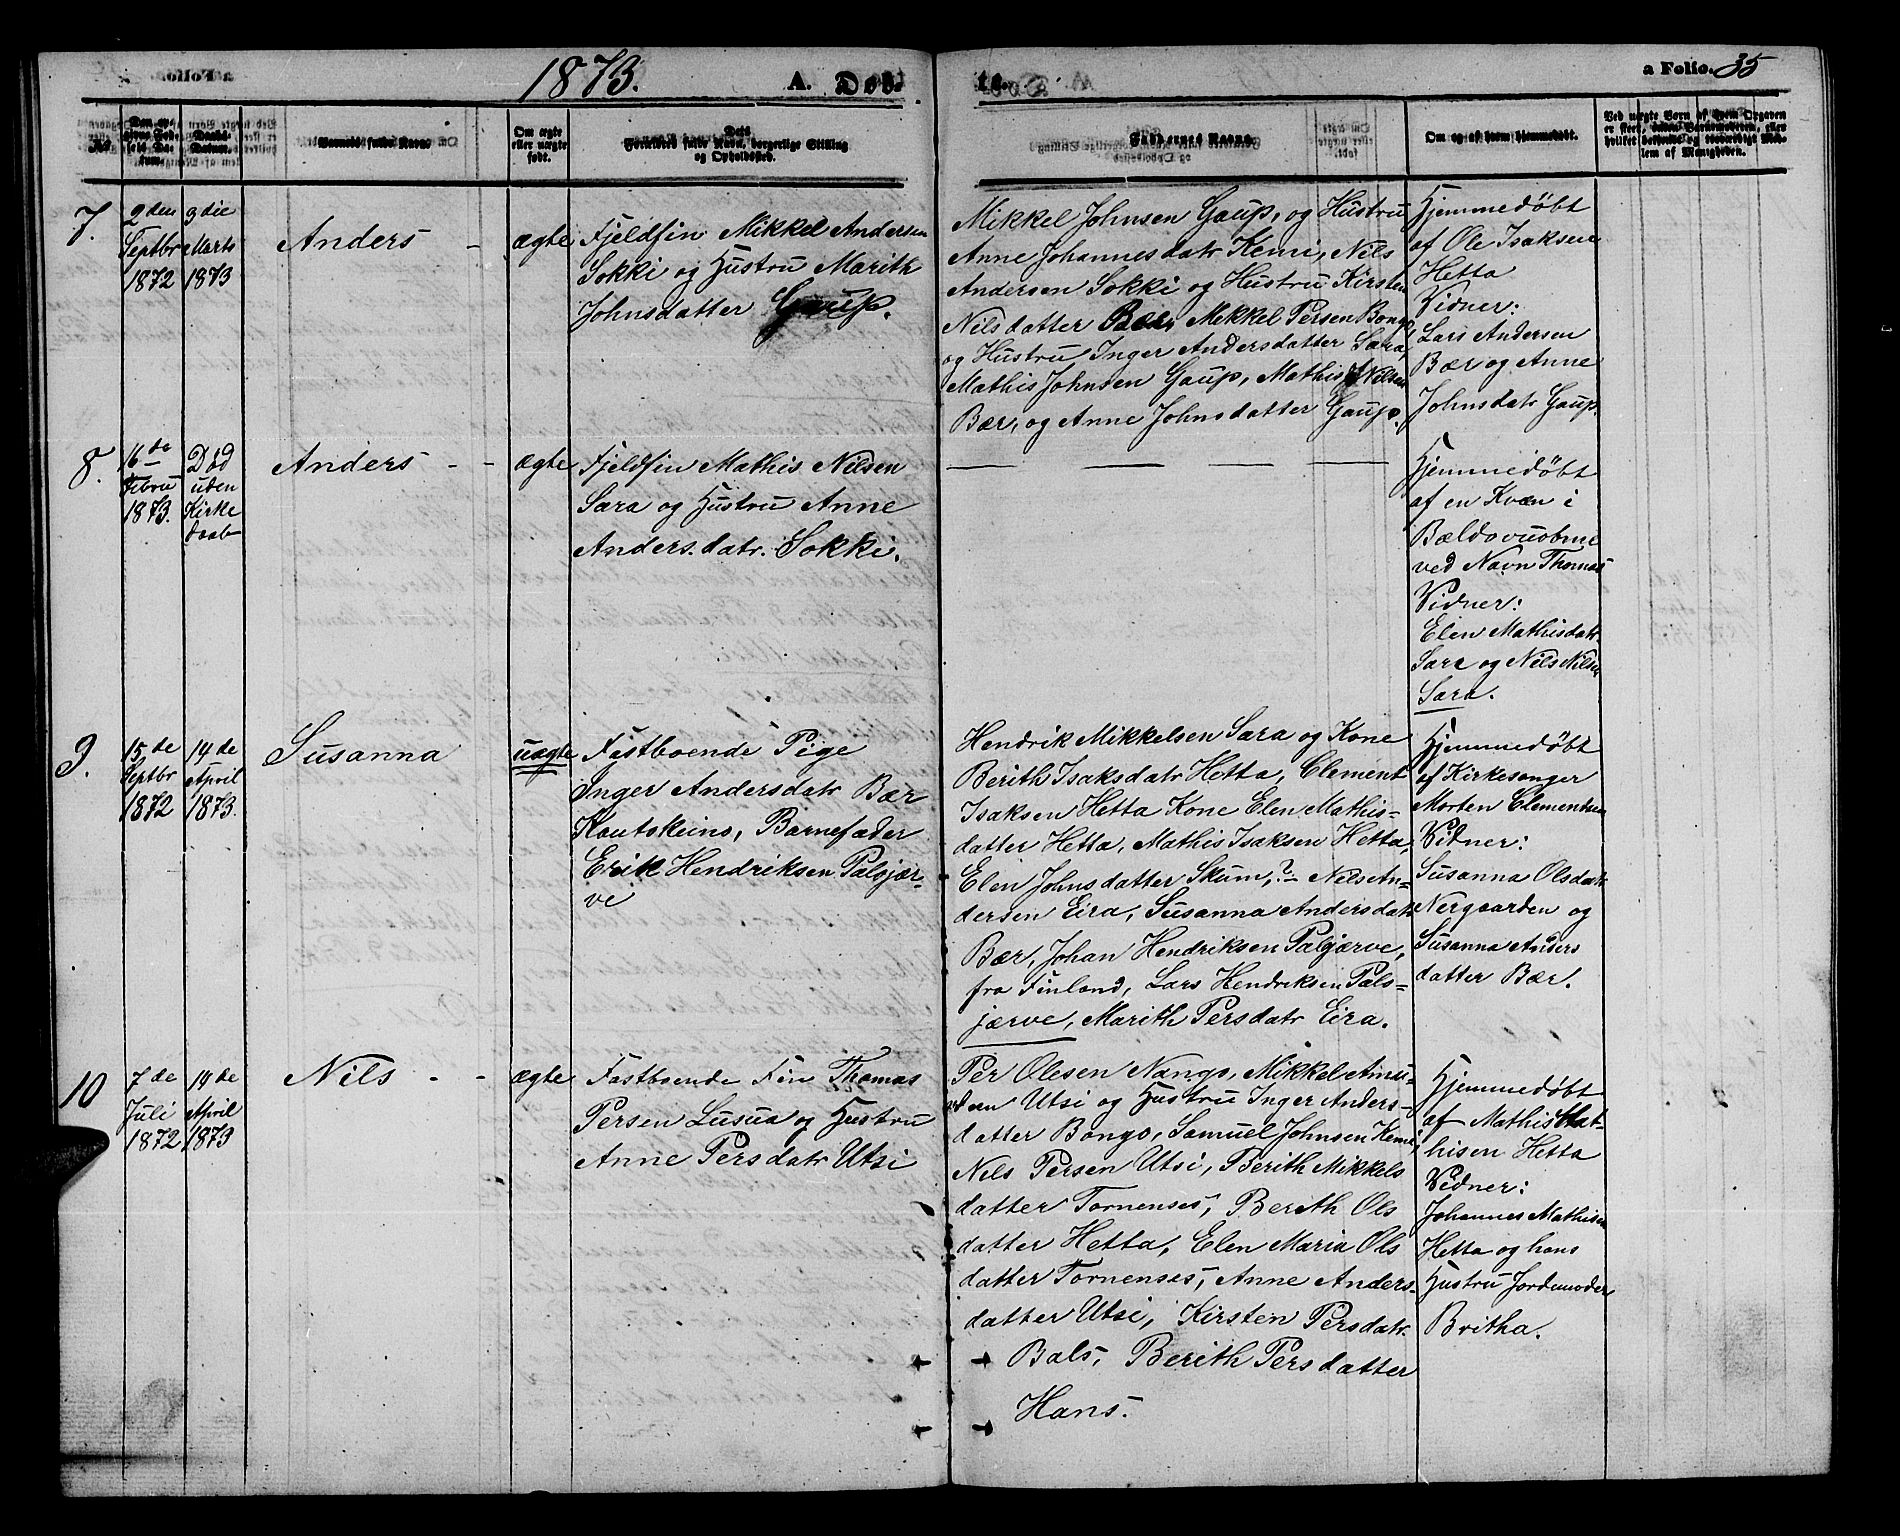 1873. A. Døbte. a Folio. 35
No.
Den opgivne Fødsels Datum.
Daabs Datum.
Barnets fulde Navn.
Om ægte eller uægte født.
Dets Forældres fulde Navn, borgerlige Stilling og Opholdsted.
Faddernes Navne.
Om og af hvem hjemmedøbt.
7.
2den
Septbr
1872
9die
Marts
1873
Anders -
ægte
Fjeldfin Mikkel Andersen
Sokki og Hustru Marith
Johnsdatter Gaup.
Mikkel Johnsen Gaup, og Hustru
Anne Johannesdatr Kemi, Nils
Andersen Sokki og Hustru Kirsten
Nilsdatter Bær, Mikkel Persen Bongo,
og Hustru Inger Andersdatter Sara,
Mathis Johnsen Gaup, Mathis Nilsen
Bær, og Anne Johnsdatter Gaup.
Hjemmedøbt
af Ole Isaksen
Hetta
Vidner:
Lars Andersen
Bær og Anne
Johnsdatr Gaup.
8.
16de
Febru
1873.
Død
uden
Kirke
daab
Anders - -
ægte
Fjeldfin Mathis Nilsen
Sara og Hustru Anne
Anders.datr. Sokki.
— — — —
Hjemmedøbt
af en Kvæn i
Bældovuobme
ved Navn Thomas
Vidner:
Elen Mathisdatr.
Sara og Nils Nilsen
Sara.
9.
15de
Septbr
1872
14de
April
1873.
Susanna
uægte
Fastboende Pige
Inger Andersdatr Bær
Koutokeino, Barnefader
Erik Hendriksen Palsjær-
vi
Hendrik Mikkelsen Sara og Kone
Berith Isaksdatr Hetta, Clement
Isaksen Hetta Kone Elen Mathis-
datter Hetta, Mathis Isaksen Hetta,
Elen Johnsdatter Skum, ?- Nils An-
dersen Eira, Susanna Andersdatr
Bær, Johan Hendriksen Palsjærve,
fra Finland, Lars Hendriksen Pals-
jærve, Marith Persdatr Eira.
Hjemmedøbt
af Kirkesanger
Morten Clementsen
Vidner:
Susanna Olsdatr
Nergaarden og
Susanna Anders
datter Bær.
10
7de
Juli
1872
14de
April
1873
Nils - -
ægte
Fastboende Fin Thomas
Persen Lusua og Hustru
Anne Persdatr Utsi
Per Olesen Nango, Mikkel Amu-
ndsen Utsi og Hustru Inger Anders-
datter Bongo, Samuel Johnsen Kemi,
Nils Persen Utsi, Berith Mikkels
datter Tornenses, Berith Ols
datter Hetta, Elen Maria Ols
datter Tornenses, Anne Anders-
datter Utsi, Kirsten Persdatr.
Bals, Berith Persdatter
Hans.
Hjemmedøbt
af Mathis Mat-
hisen Hetta
Vidner:
Johannes Mathisen
Hetta og hans
Hustru Jordemoder
Britha.